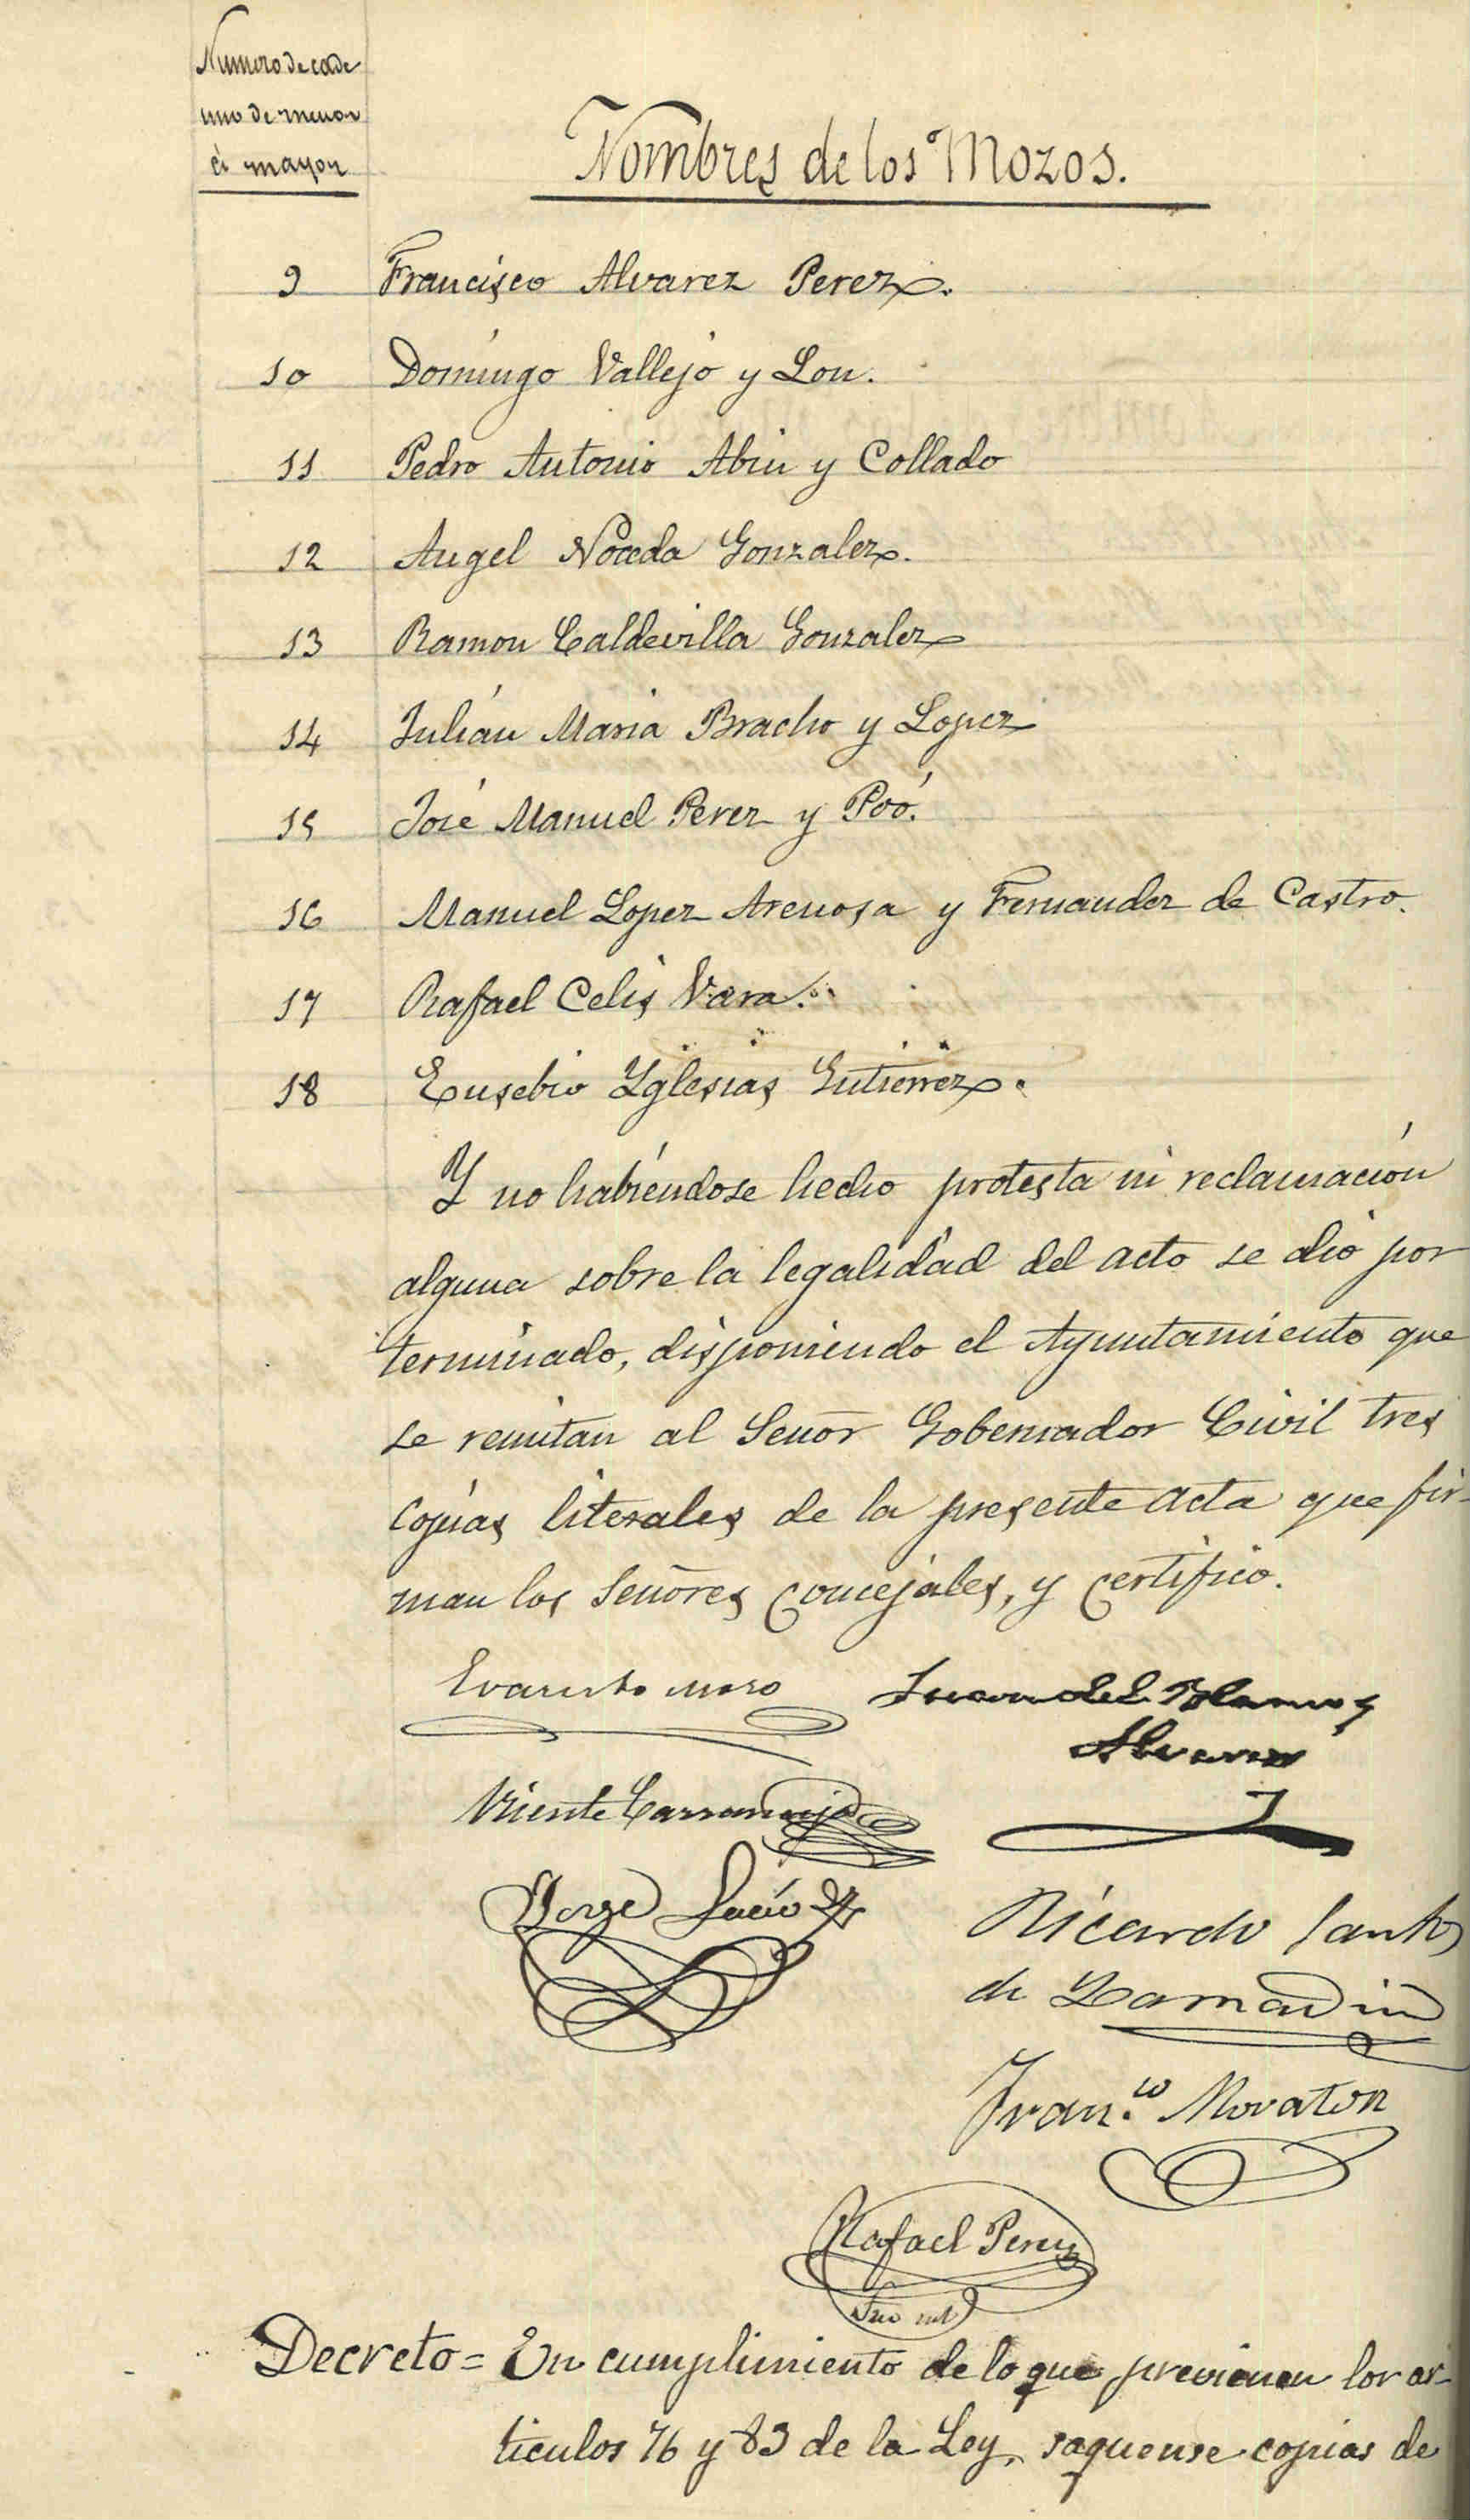 Numero de cada
uno de menor
á mayor
Nombres de los Mozos.
9 Francisco Alvarez Perez.
10 Domingo Vallejo y Lon.
11 Pedro Antonio Abin y Collado
12 Angel Noceda Gonzalez.
13 Ramon Caldevilla Gonzalez
14 Julián Maria Bracho y Lopez
15 José Manuel Perez y Poó.
16 Manuel Lopez Arenosa y Fernandez de Castro.
17 Rafael Celis Vara.
18 Eusebio Yglesias Gutierrez.
Y no habiéndose hecho protesta ni reclamación
alguna sobre la legalidad del acto se dió por
terminado, disponiendo el Ayuntamiento que
se remitan al Señor Gobernador Civil tres
copias literales de la presente acta que fir-
man los Señores Concejales, y certifico.
Evaristo Moro
Juan del Alamo y
Alvarez
Vicente Carranceja
Jorge Lucio
Ricardo Santos
de Lamadrid
Fran.co Moraton
Rafael Perez
Decreto = En cumplimiento de lo que previenen los ar-
ticulos 76 y 83 de la Ley, saquense copias de